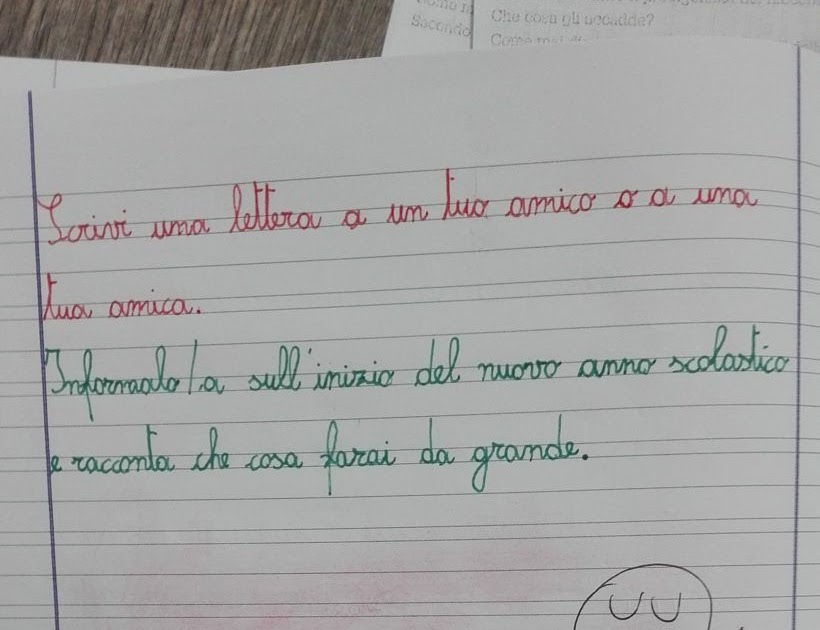 Secondo
Che cosa gli accadde?
Scrivi una lettera a un tuo amico o a una
tua amica.
Informalo/a sull'inizio del nuovo anno scolastico
e racconta che cosa farai da grande.